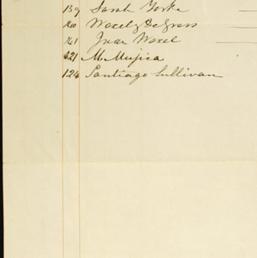 159 Sarah Yorke
160 Worel y DeGrass
161 Juan Worel
421 M. Mujica
124 Santiago Sullivan